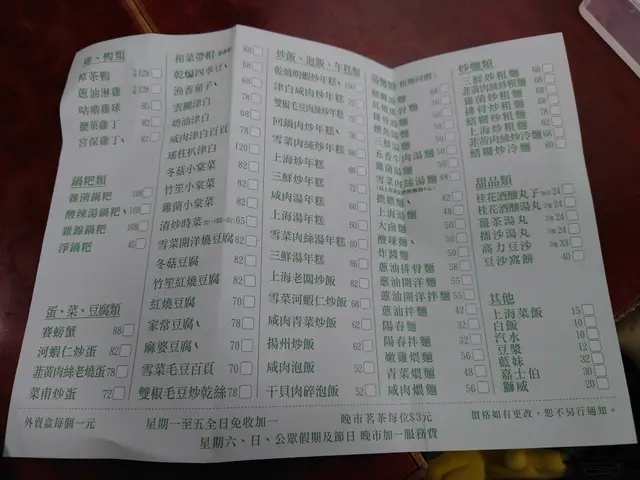 雞、鴨類
樟茶鴨 128
蔥油淋雞 128
咕嚕雞球 85
醬菜雞丁 82
宮保雞丁 82
鍋粑類
雜菌鍋粑 108
酸辣湯鍋粑 108
雜錦鍋粑 108
淨鍋粑 45
蛋、菜、豆腐類
賽螃蟹 88
河蝦仁炒蛋 82
韭黃肉絲老燒蛋 78
菜甫炒蛋 72
和菜帶帽 88
乾煸四季豆 68
漁香茄子 68
雲腿津白
奶油津白 78
咸肉津白百頁 78
瑤柱扒津白 120
冬菇小棠菜 78
竹笙小棠菜 78
雜菌小棠菜 78
清炒時菜 65
雪菜開洋燒豆腐 82
冬菇豆腐 82
竹笙紅燒豆腐 82
紅燒豆腐 70
家常豆腐 78
麻婆豆腐 70
雪菜毛豆百頁 70
雙椒毛豆炒乾絲 78
炒飯、泡飯、年糕類
乾燒明蝦炒年糕 150
津白咸肉炒年糕 72
雙椒毛豆肉絲炒年糕
回鍋肉炒年糕
雪菜肉絲炒年糕
上海炒年糕
三鮮炒年糕
咸肉湯年糕
上海湯年糕
雪菜肉絲湯年糕 60
三鮮湯年糕 66
上海老闆炒飯 62
雪菜河蝦仁炒飯 68
咸肉青菜炒飯 62
揚州炒飯 62
咸肉泡飯 52
干貝肉碎泡飯 52
五香牛肉湯麵 50
雪菜肉絲湯麵 48
擔擔麵 42
上海湯麵 48
大鹵麵 50
酸辣麵 50
炸醬麵 50
蔥油排骨麵 58
蔥油開洋麵 55
蔥油開洋拌麵 55
蔥油拌麵 42
陽春麵 32
陽春拌麵 32
嫩雞煨麵 56
青菜煨麵 48
咸肉煨麵 56
炒麵類
三鮮炒粗麵 68
韭黃肉絲炒粗麵 68
雜菌炒粗麵 68
排骨炒粗麵 68
鱔糊炒粗麵 78
上海炒粗麵 62
韭黃肉絲炒冷麵 68
鱔糊炒冷麵 80
甜品類
桂花酒釀丸子 24
桂花酒釀湯丸 24
薑茶湯丸 24
擂沙湯丸 24
高力豆沙 33
豆沙窩餅 40
其他
上海菜飯 15
白飯 10
汽水 10
豆漿 12
藍妹 32
嘉士伯 30
獅威 20
外賣盒每個一元 星期一至五全日免收加一 晚市茗茶每位$3元 價格如有更改，恕不另行通知。
星期六、日、公眾假期及節日 晚市加一服務費